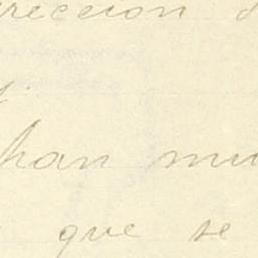 irección d
han mu
que se